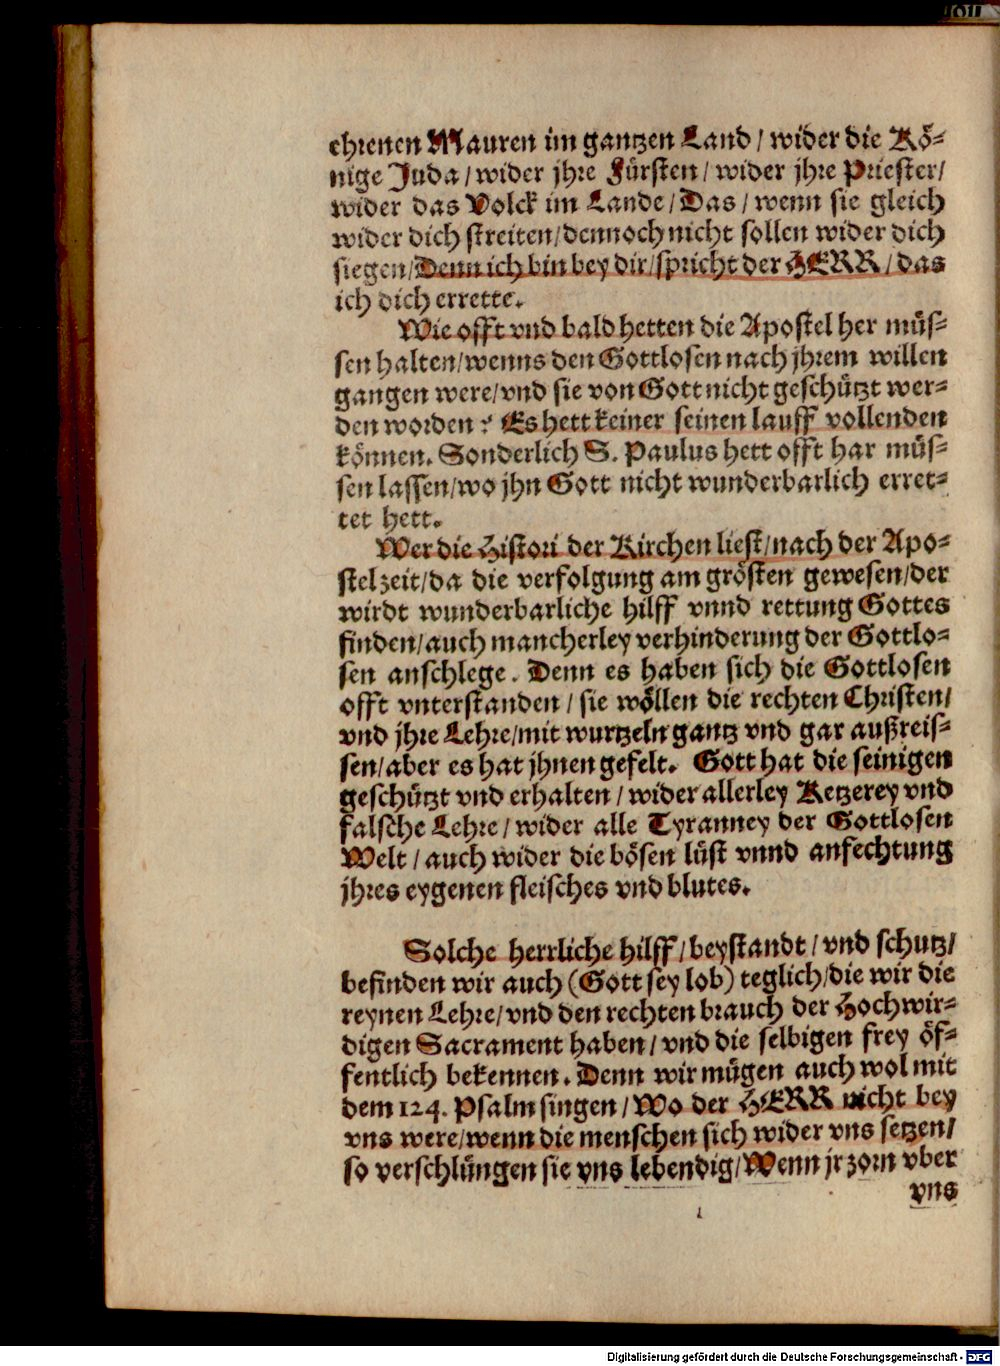 ehrenen Mauren im gantzen Land / wider die Kö-
nige Juda / wider jhre Fürsten / wider jhre Priester /
wider das Volck im Lande / Das / wenn sie gleich
wider dich streiten / dennoch nicht sollen wider dich
siegen / Denn ich bin bey dir / spricht der HERR / das
ich dich errette.
Wie offt vnd bald hetten die Apostel her müs-
sen halten / wenns den Gottlosen nach jhrem willen
gangen were / vnd sie von Gott nicht geschützt wer-
den worden? Es hett keiner seinen lauff vollenden
können. Sonderlich S. Paulus hett offt har müs-
sen lassen / wo jhn Gott nicht wunderbarlich erret-
tet hett.
Wer die Histori der Kirchen liest / nach der Apo-
stel zeit / da die verfolgung am grösten gewesen / der
wirdt wunderbarliche hilff vnnd rettung Gottes
finden / auch mancherley verhinderung der Gottlo-
sen anschlege. Denn es haben sich die Gottlosen
offt vnterstanden / sie wöllen die rechten Christen /
vnd jhre Lehre / mit wurtzeln gantz vnd gar außreis-
sen / aber es hat jhnen gefelt. Gott hat die seinigen
geschützt vnd erhalten / wider allerley Ketzerey vnd
falsche Lehre / wider alle Tyranney der Gottlosen
Welt / auch wider die bösen lüst vnnd anfechtung
jhres eygenen fleisches vnd blutes.
Solche herrliche hilff / beystandt / vnd schutz /
befinden wir auch (Gott sey lob) teglich / die wir die
reynen Lehre / vnd den rechten brauch der Hochwir-
digen Sacrament haben / vnd die selbigen frey öf-
fentlich bekennen. Denn wir mügen auch wol mit
dem 124. Psalm singen / Wo der HERR nicht bey
vns were / wenn die menschen sich wider vns setzen /
so verschlüngen sie vns lebendig / Wenn jr zorn vber
vns
Digitalisierung gefördert durch die Deutsche Forschungsgemeinschaft - DFG